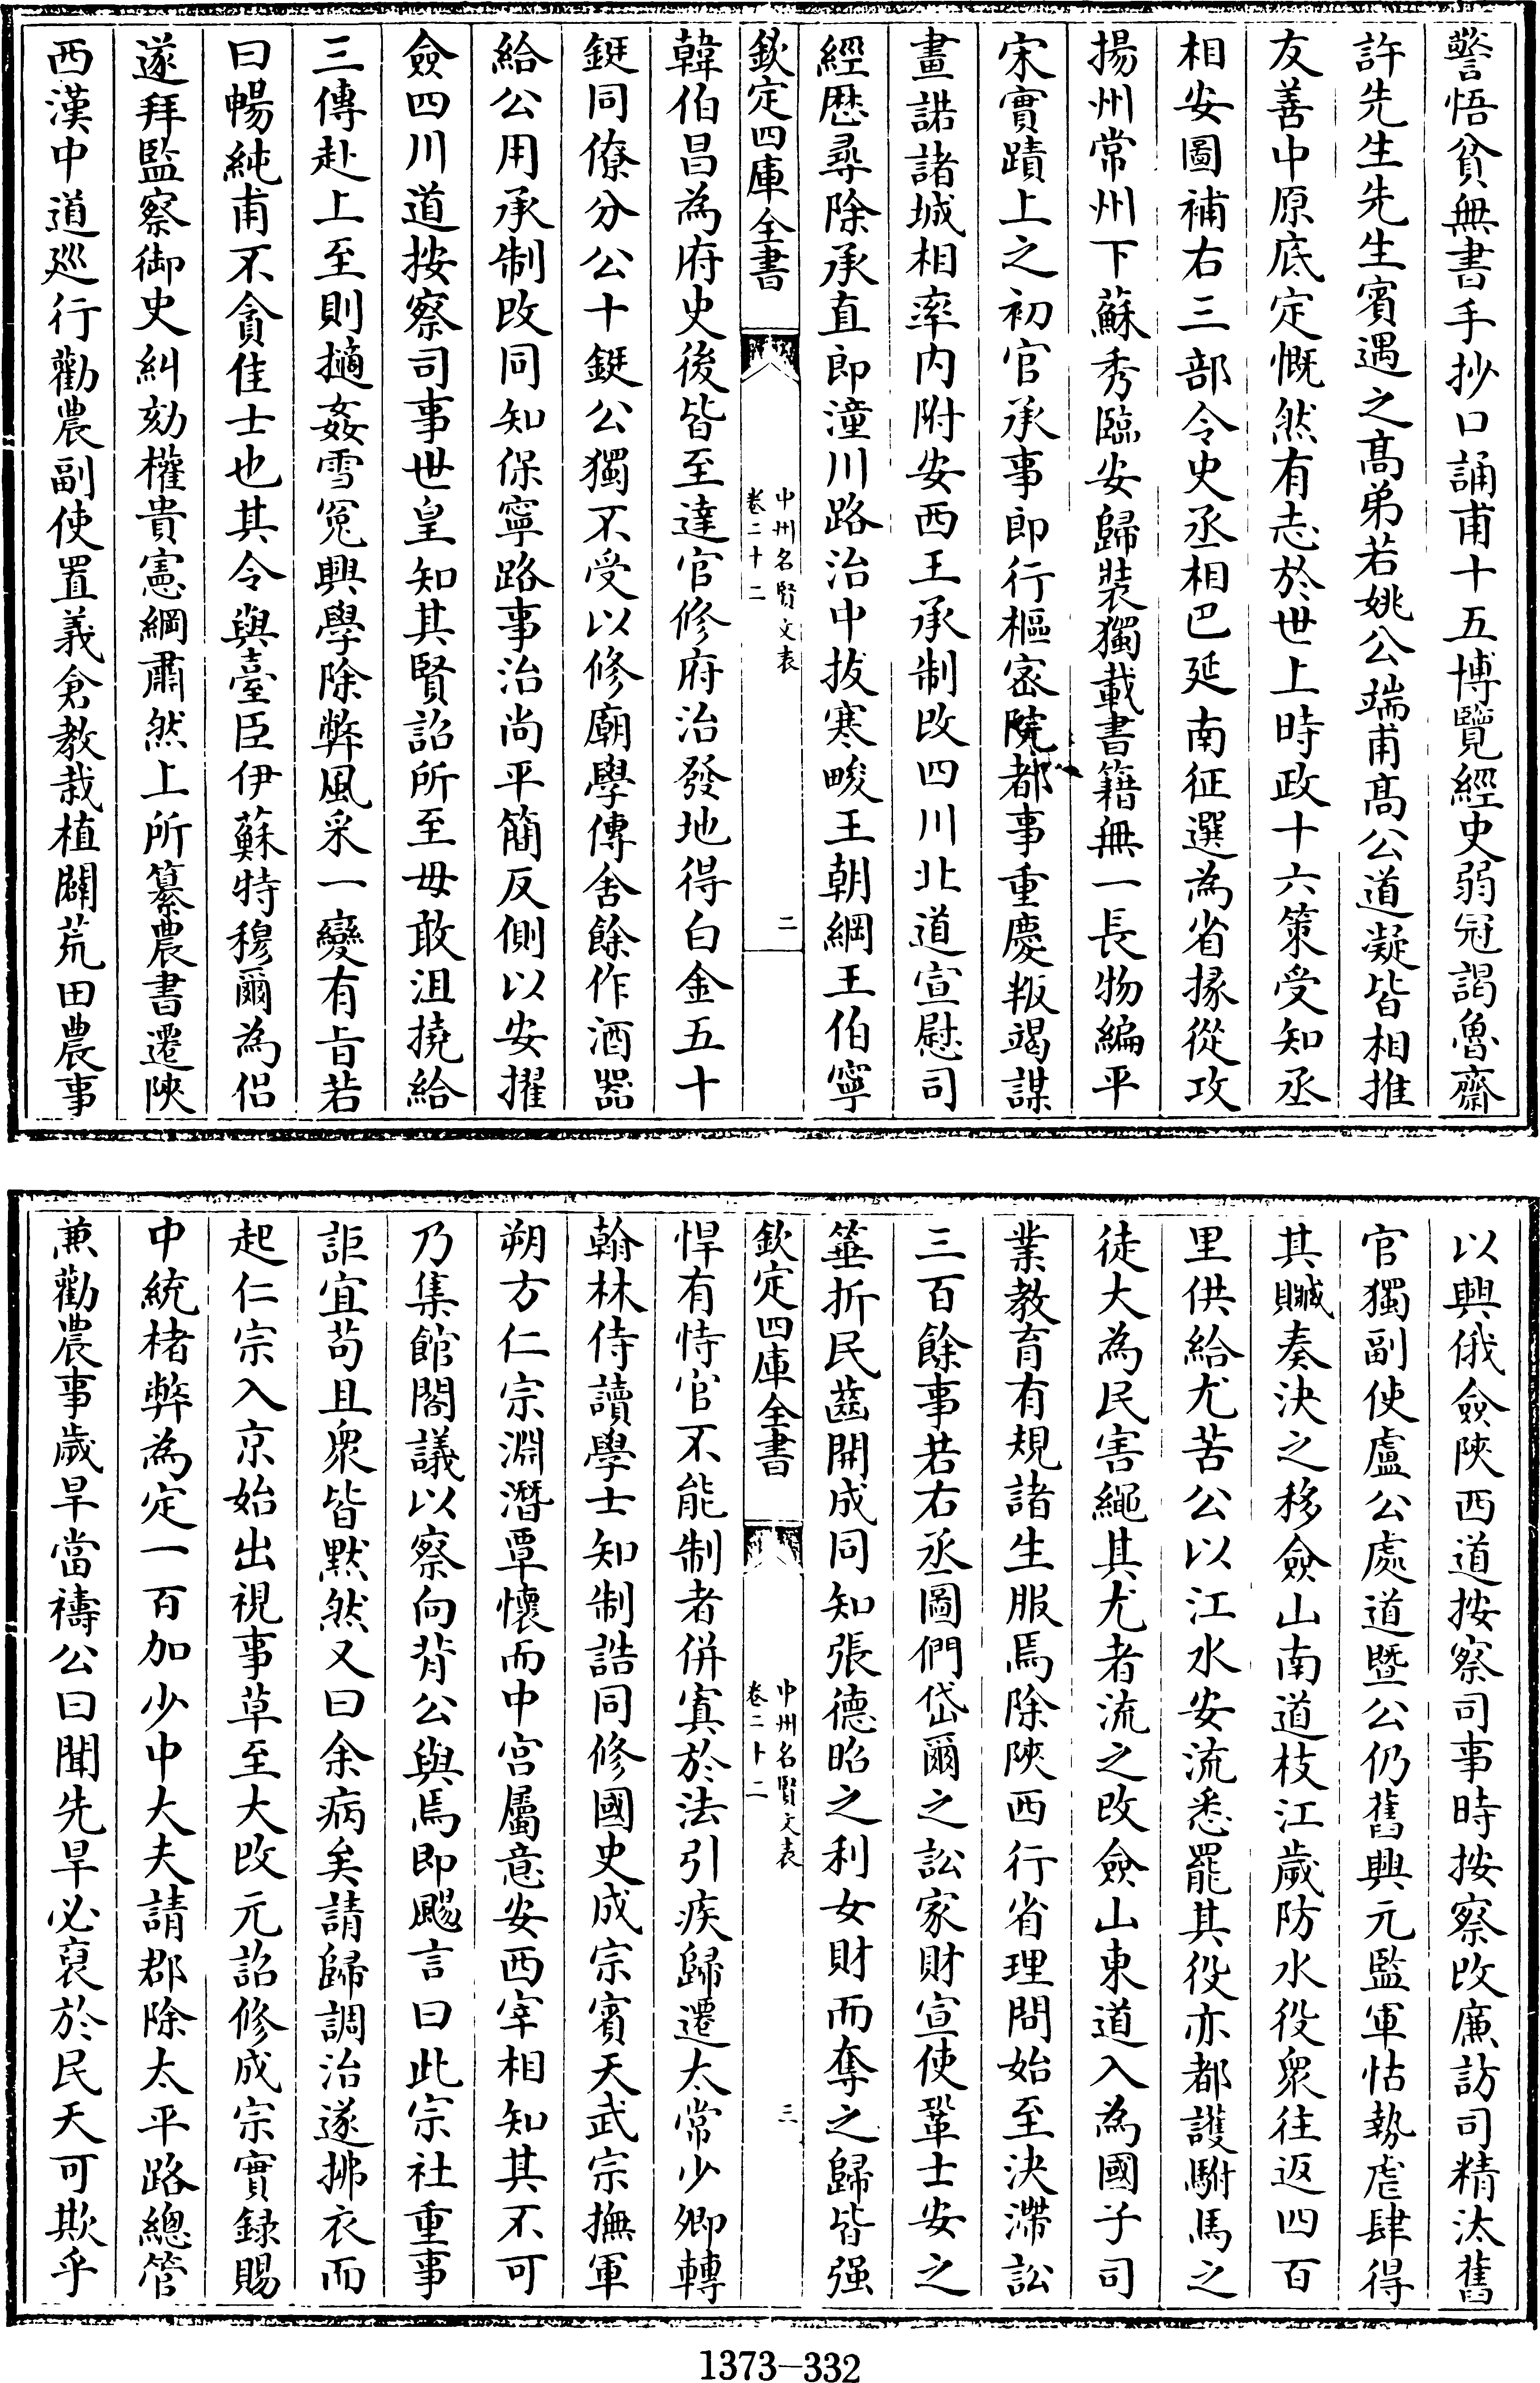 警悟貧無書手抄口誦甫十五博覽經史弱冠謁魯齋
許先生先生賓遇之髙弟若姚公端甫髙公道凝皆相推
友善中原底定慨然有志於世上時政十六策受知丞
相安圖補右三部令史丞相巴延南征選為省掾從攻
揚州常州下蘇秀臨安歸裝獨載書籍無一長物編平
宋實蹟上之初官承事郎行樞密院都事重慶叛竭謀
畫諾諸城相率内附安西王承制改四川北道宣慰司
經歴尋除承直郎潼川路治中拔寒畯王朝綱王伯寧
欽定四庫全書
中州名賢文表
卷二十二
二
韓伯昌為府史後皆至達官修府治發地得白金五十
鋌同僚分公十鋌公獨不受以修廟學傳舍餘作酒器
給公用承制改同知保寧路事治尚平簡反側以安擢
僉四川道按察司事世皇知其賢詔所至毋敢沮撓給
三傳赴上至則擿姦雪冤興學除弊風采一變有旨若
曰暢純甫不貪佳士也其令與臺臣伊蘇特穆爾為侣
遂拜監察御史糾劾權貴憲綱肅然上所纂農書遷陜
西漢中道廵行勸農副使置義倉教栽植闢荒田農事
以興俄僉陜西道按察司事時按察改廉訪司精汰舊
官獨副使盧公處道暨公仍舊興元監軍怙勢虐肆得
其贓奏決之移僉山南道枝江歲防水役衆往返四百
里供給尤苦公以江水安流悉罷其役亦都護駙馬之
徒大為民害繩其尤者流之改僉山東道入為國子司
業教育有規諸生服焉除陜西行省理問始至決滯訟
三百餘事若右丞圖們岱爾之訟家財宣使鞏士安之
箠折民齒開成同知張德昭之利女財而奪之歸皆强
欽定四庫全書
中州名賢文表
卷二十二
三
悍有恃官不能制者併寘於法引疾歸遷太常少卿轉
翰林侍讀學士知制誥同修國史成宗賓天武宗撫軍
朔方仁宗淵潛覃懷而中宫屬意安西宰相知其不可
乃集館閣議以察向背公與焉即颺言曰此宗社重事
詎宜苟且衆皆默然又曰余病矣請歸調治遂拂衣而
起仁宗入京始出視事草至大改元詔修成宗實録賜
中統楮幣為定一百加少中大夫請郡除太平路總管
兼勸農事歲旱當禱公曰聞先旱必裒於民天可欺乎
1373-332